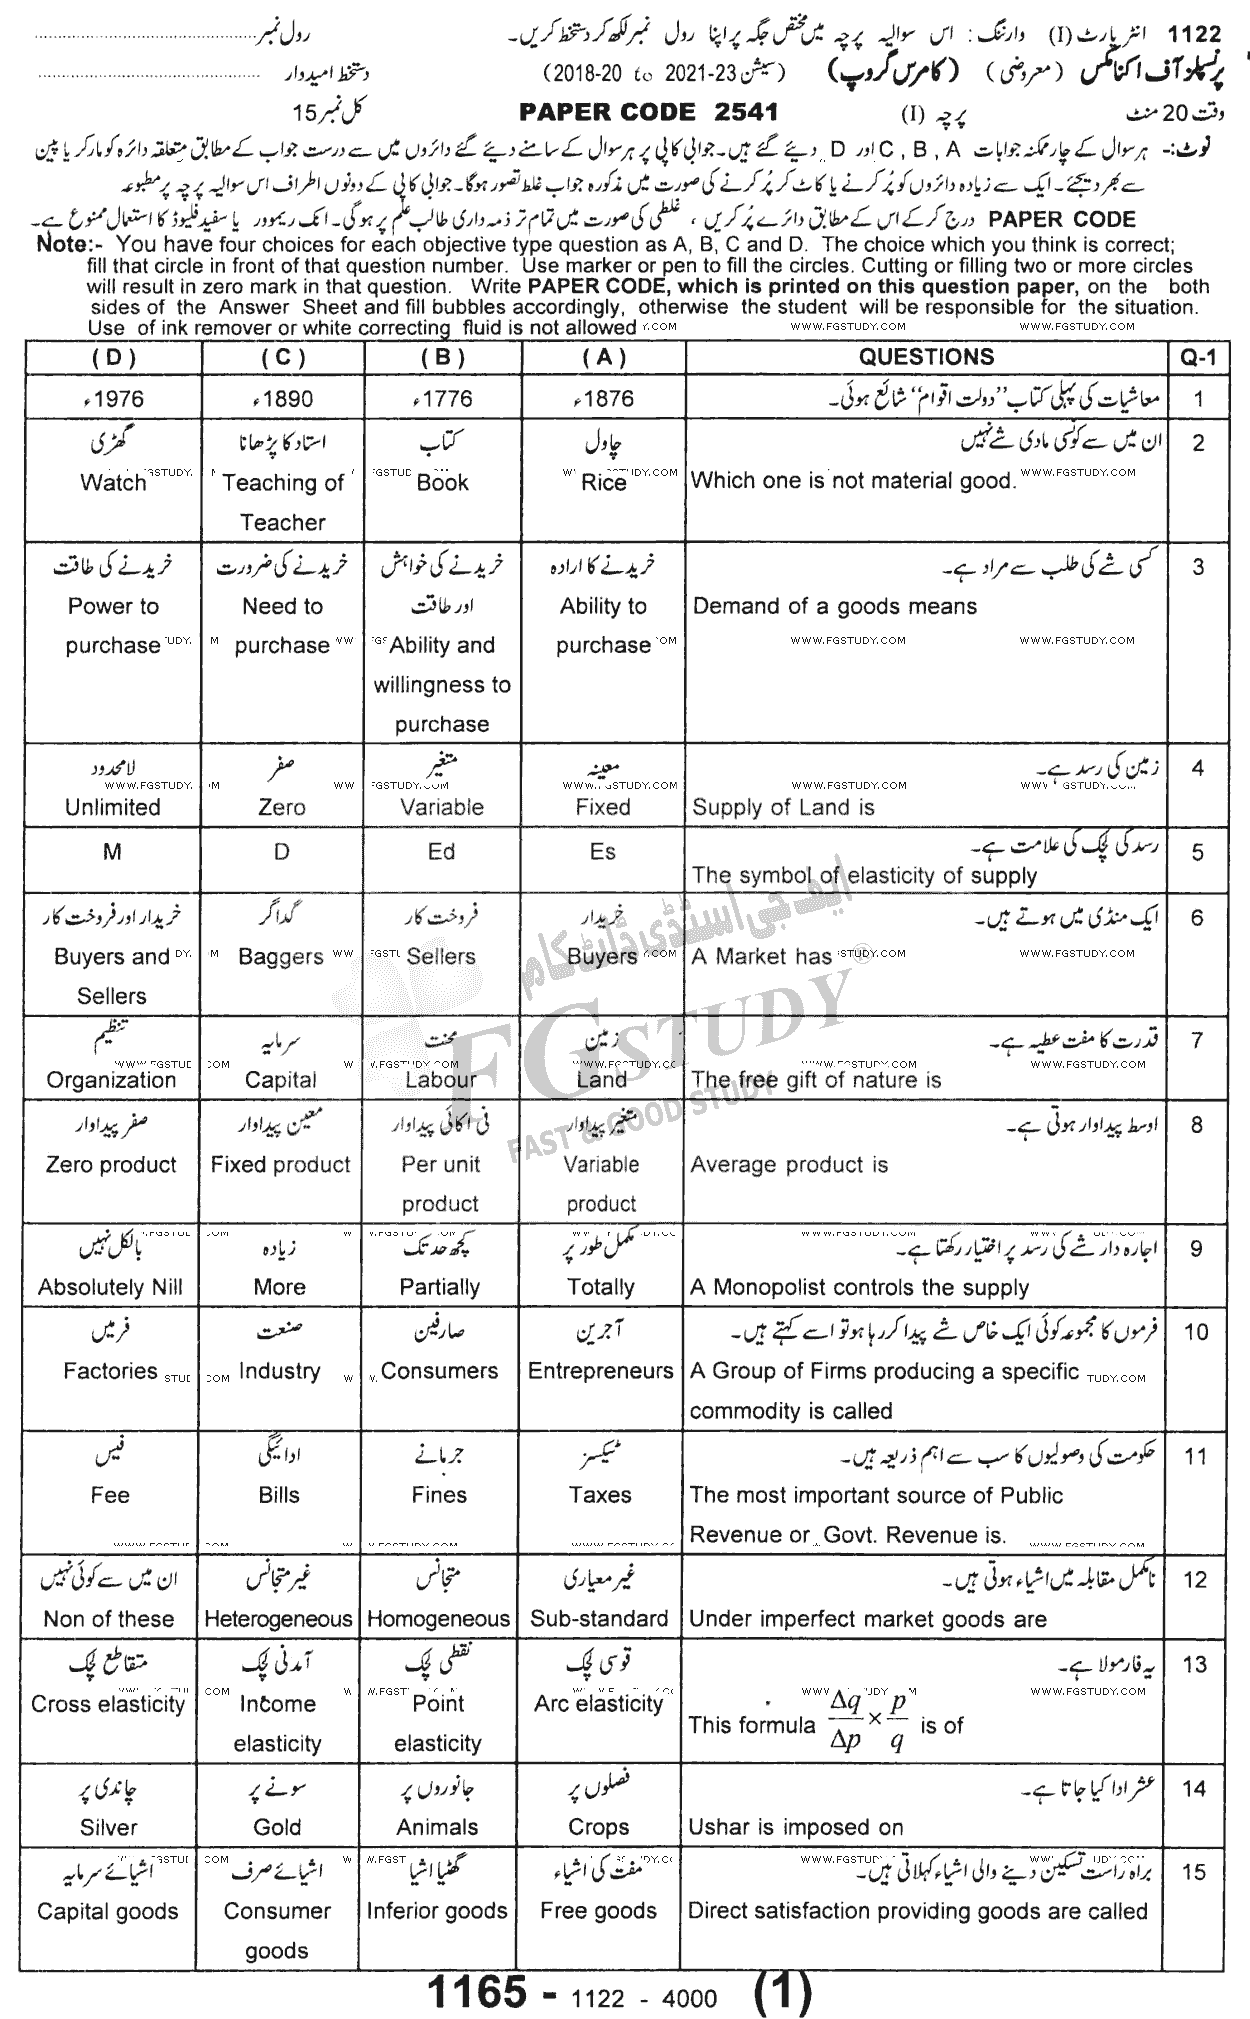 1122 انٹر پارٹ (I) وارننگ : اس سوالیہ پرچہ میں مختص جگہ پر اپنا رول نمبر لکھ کر دستخط کریں۔ رول نمبر
پرنسپلز آف اکنامکس (معروضی) (کامرس گروپ) (سیشن 2018-20 to 2021-23) دستخط امیدوار
وقت 20 منٹ پرچہ (I) PAPER CODE 2541 کل نمبر 15
نوٹ:- ہر سوال کے چار ممکنہ جوابات A ، B ، C اور D دیئے گئے ہیں۔ جوابی کاپی پر ہر سوال کے سامنے دیئے گئے دائروں میں سے درست جواب کے مطابق متعلقہ دائرہ کو مارکر یا پین
سے بھر دیجئے۔ ایک سے زیادہ دائروں کو پُر کرنے یا کاٹ کر پُر کرنے کی صورت میں مذکورہ جواب غلط تصور ہوگا۔ جوابی کاپی کے دونوں اطراف اس سوالیہ پرچہ پر مطبوعہ
PAPER CODE درج کر کے اس کے مطابق دائرے پُر کریں ، غلطی کی صورت میں تمام تر ذمہ داری طالب علم پر ہوگی۔ انک ریموور یا سفید فلیوڈ کا استعمال ممنوع ہے۔
Note:- You have four choices for each objective type question as A, B, C and D. The choice which you think is correct;
fill that circle in front of that question number. Use marker or pen to fill the circles. Cutting or filling two or more circles
will result in zero mark in that question. Write PAPER CODE, which is printed on this question paper, on the both
sides of the Answer Sheet and fill bubbles accordingly, otherwise the student will be responsible for the situation.
Use of ink remover or white correcting fluid is not allowed
WWW.FGSTUDY.COM WWW.FGSTUDY.COM
(D) (C) (B) (A) QUESTIONS Q-1
1976ء 1890ء 1776ء 1876ء معاشیات کی پہلی کتاب "دولت اقوام" شائع ہوئی۔ 1
گھڑی استاد کا پڑھانا کتاب چاول ان میں سے کونسی مادی شے نہیں 2
Watch Teaching of Book Rice Which one is not material good.
Teacher
خریدنے کی طاقت خریدنے کی ضرورت خریدنے کی خواہش خریدنے کا ارادہ کسی شے کی طلب سے مراد ہے۔ 3
Power to Need to اور طاقت Ability to Demand of a goods means
purchase purchase Ability and purchase
willingness to
purchase
لامحدود صفر متغیر معینہ زمین کی رسد ہے۔ 4
Unlimited Zero Variable Fixed Supply of Land is
M D Ed Es رسد کی لچک کی علامت ہے۔ 5
The symbol of elasticity of supply
خریدار اور فروخت کار گداگر فروخت کار خریدار ایک منڈی میں ہوتے ہیں۔ 6
Buyers and Baggers Sellers Buyers A Market has
Sellers
تنظیم سرمایہ محنت زمین قدرت کا مفت عطیہ ہے۔ 7
Organization Capital Labour Land The free gift of nature is
صفر پیداوار معین پیداوار فی اکائی پیداوار متغیر پیداوار اوسط پیداوار ہوتی ہے۔ 8
Zero product Fixed product Per unit Variable Average product is
product product
بالکل نہیں زیادہ کچھ حد تک مکمل طور پر اجارہ دار شے کی رسد پر اختیار رکھتا ہے۔ 9
Absolutely Nill More Partially Totally A Monopolist controls the supply
فرمیں صنعت صارفین آجرین فرموں کا مجموعہ کوئی ایک خاص شے پیدا کر رہا ہو تو اسے کہتے ہیں۔ 10
Factories Industry Consumers Entrepreneurs A Group of Firms producing a specific
commodity is called
فیس ادائیگی جرمانے ٹیکسز حکومت کی وصولیوں کا سب سے اہم ذریعہ ہیں۔ 11
Fee Bills Fines Taxes The most important source of Public
Revenue or Govt. Revenue is.
ان میں سے کوئی نہیں غیر متجانس متجانس غیر معیاری نامکمل مقابلہ میں اشیاء ہوتی ہیں۔ 12
Non of these Heterogeneous Homogeneous Sub-standard Under imperfect market goods are
متقاطع لچک آمدنی لچک نقطی لچک قوسی لچک یہ فارمولا ہے۔ 13
Cross elasticity Income Point Arc elasticity This formula Δq/Δp × p/q is of
elasticity elasticity
چاندی پر سونے پر جانوروں پر فصلوں پر عشر ادا کیا جاتا ہے۔ 14
Silver Gold Animals Crops Ushar is imposed on
اشیائے سرمایہ اشیائے صرف گھٹیا اشیا مفت کی اشیاء براہ راست تسکین دینے والی اشیاء کہلاتی ہیں۔ 15
Capital goods Consumer Inferior goods Free goods Direct satisfaction providing goods are called
goods
ایف جی اسٹڈی ڈاٹ کام
FGSTUDY®
FAST & GOOD STUDY
1165 - 1122 - 4000 (1)